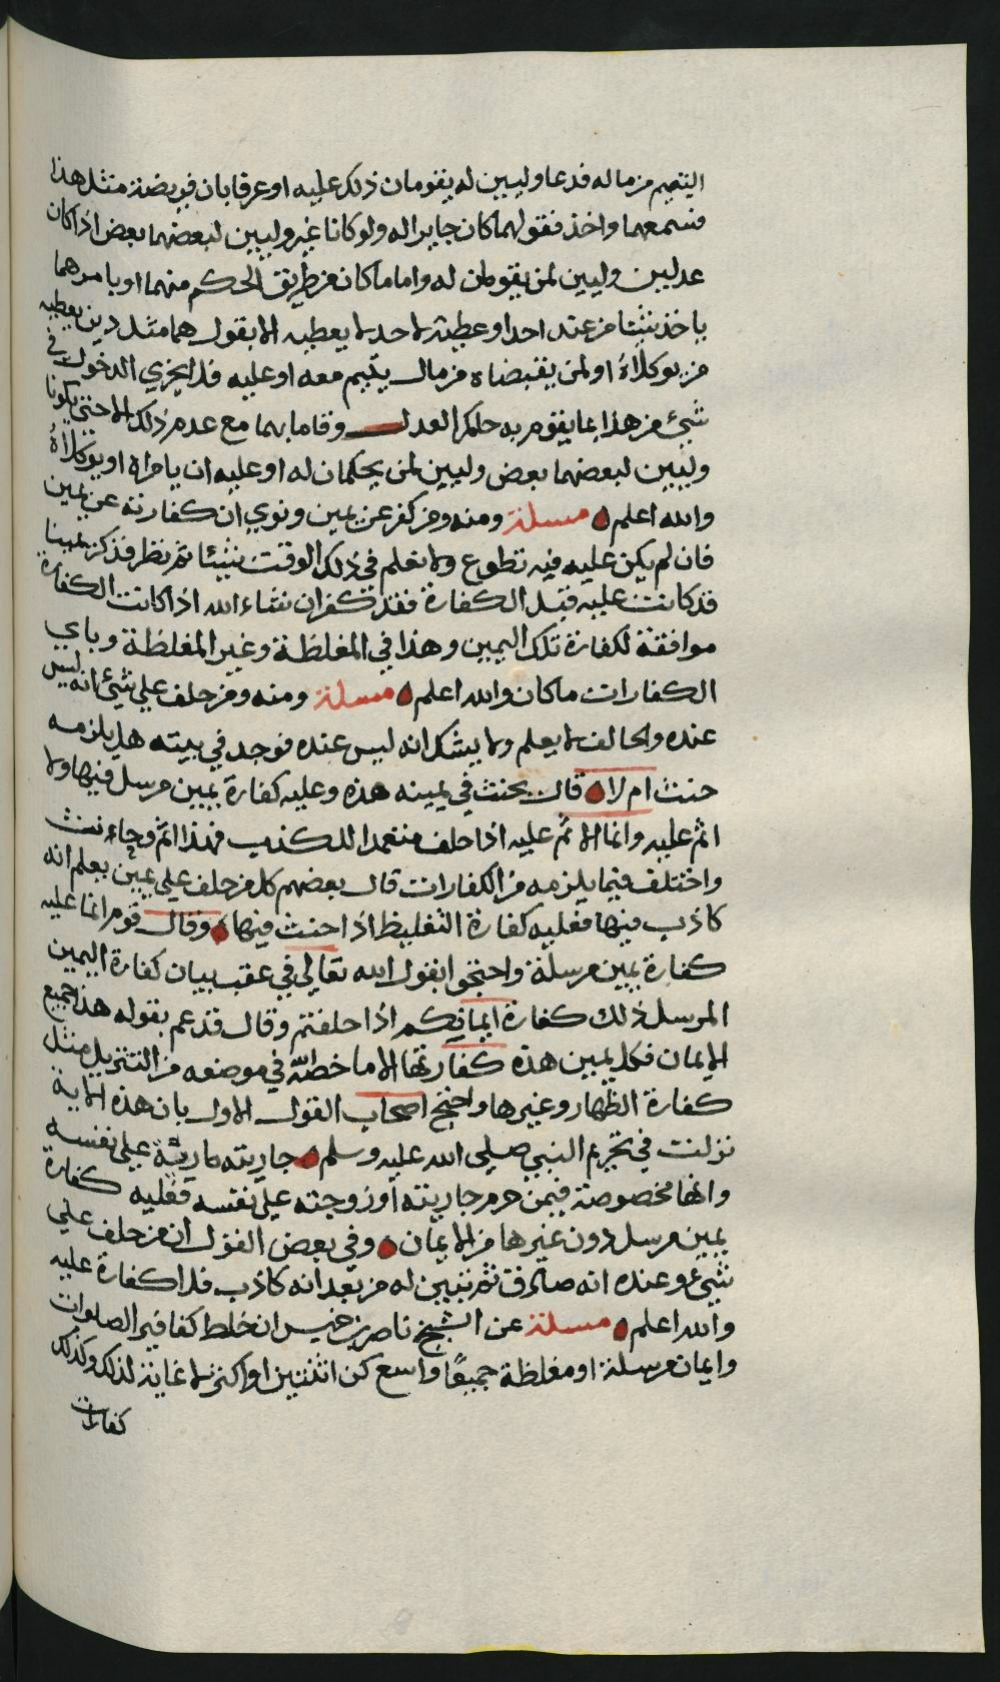 اليتيم من ماله فدعا وليين له يقومان ذلك عليه او عرفا بان فريضة مثل هذا
فسمعهما واخذ فقولهما كان جايزا له ولو كانا غير وليين لبعضهما بعض اذا كان
عدلين وليين لمن يقومان له واما ما كان من طريق الحكم منهما او يامرهما
ياخذ شيئا من عند احد او عطيته لاحد لا يعطيه الا بقولهما مثل دين يعطيه
من يوكلاه او لمن يقبضاه من مال يتيم معه او عليه فلا يجزي الدخول في
شيئ من هذا بما يقوم به حاكم العدل وقاما بهما مع عدم ذلك الا حتى يكونا
وليين لبعضهما بعض وليين لمن يحكمان له او عليه ان يامراه او يوكلاه
والله اعلم مسئلة ومنه ومن كفر عن يمين ونوي ان كفارته عن يمين
فان لم يكن عليه فيه تطوع ولا نعلم في ذلك الوقت شيئا ثم نظر فذكر يمينا
قد كانت عليه قبل الكفارة فقد كفر ان شاء الله اذا كانت الكفارة
موافقة لكفارة تلك اليمين وهذا في المغلظة وغير المغلظة وباي
الكفارات ما كان والله اعلم مسئلة ومنه ومن حلف علي شيئ انه ليس
عنده والحالف لا يعلم ولا يشك انه ليس عنده فوجد في بيته هل يلزمه
حنث ام لا قال يحنث في يمينه هذه وعليه كفارة يمين مرسل فيها ولا
اثم عليه وانما الاثم عليه اذا حلف متعمدا للكذب فهذا اثم وحانث
واختلف فيما يلزمه من الكفارات قال بعضهم كل من حلف علي يمين يعلم انه
كاذب فيها فعليه كفارة التغليظ اذا حنث فيها وقال قوم انما عليه
كفارة يمين مرسلة واحتجوا بقول الله تعالي في عقب بيان كفارة اليمين
المرسل ذلك كفارة ايمانكم اذا حلفتم وقال قد عم بقوله هذا جميع
الايمان فكل يمين هذه كفارتها الا ما خصه الله في موضعه من التنزيل مثل
كفارة الظهار وغيرها واحتج اصحاب القول الاول بان هذه الاية
نزلت في تحريم النبي صلى الله عليه وسلم جاريته مارية علي نفسه
وانها مخصوصة فيمن حرم جاريته او زوجته علي نفسه فعليه كفارة
يمين مرسل دون غيرها من الايمان وفي بعض القول ان من حلف علي
شيء وعنده انه صادق ثم تبين له من بعد انه كاذب فلا كفارة عليه
والله اعلم مسئلة عن الشيخ ناصر بن خميس ان خلط كفافير الصلوات
وايمان مرسلة او مغلظة جميعًا واسع كن اثنتين او اكثر لا غاية لذلك وكذلك
كفارات